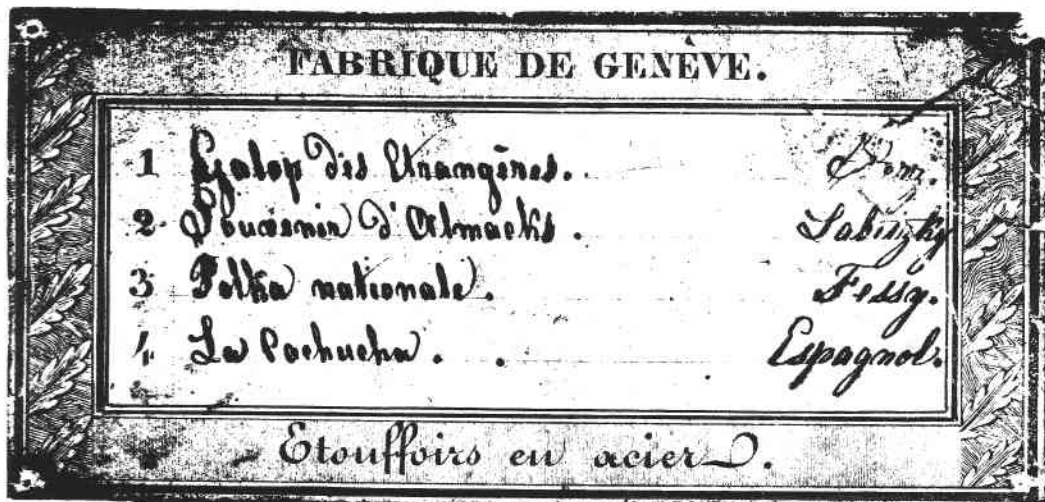 FABRIQUE DE GENÈVE.
1 Galop des Etrangères.
2 Souvenir d'Almacks. Labitzky
3 Polka nationale. Fessy.
4 La Cachucha. . Espagnol.
Etouffoirs en acier.